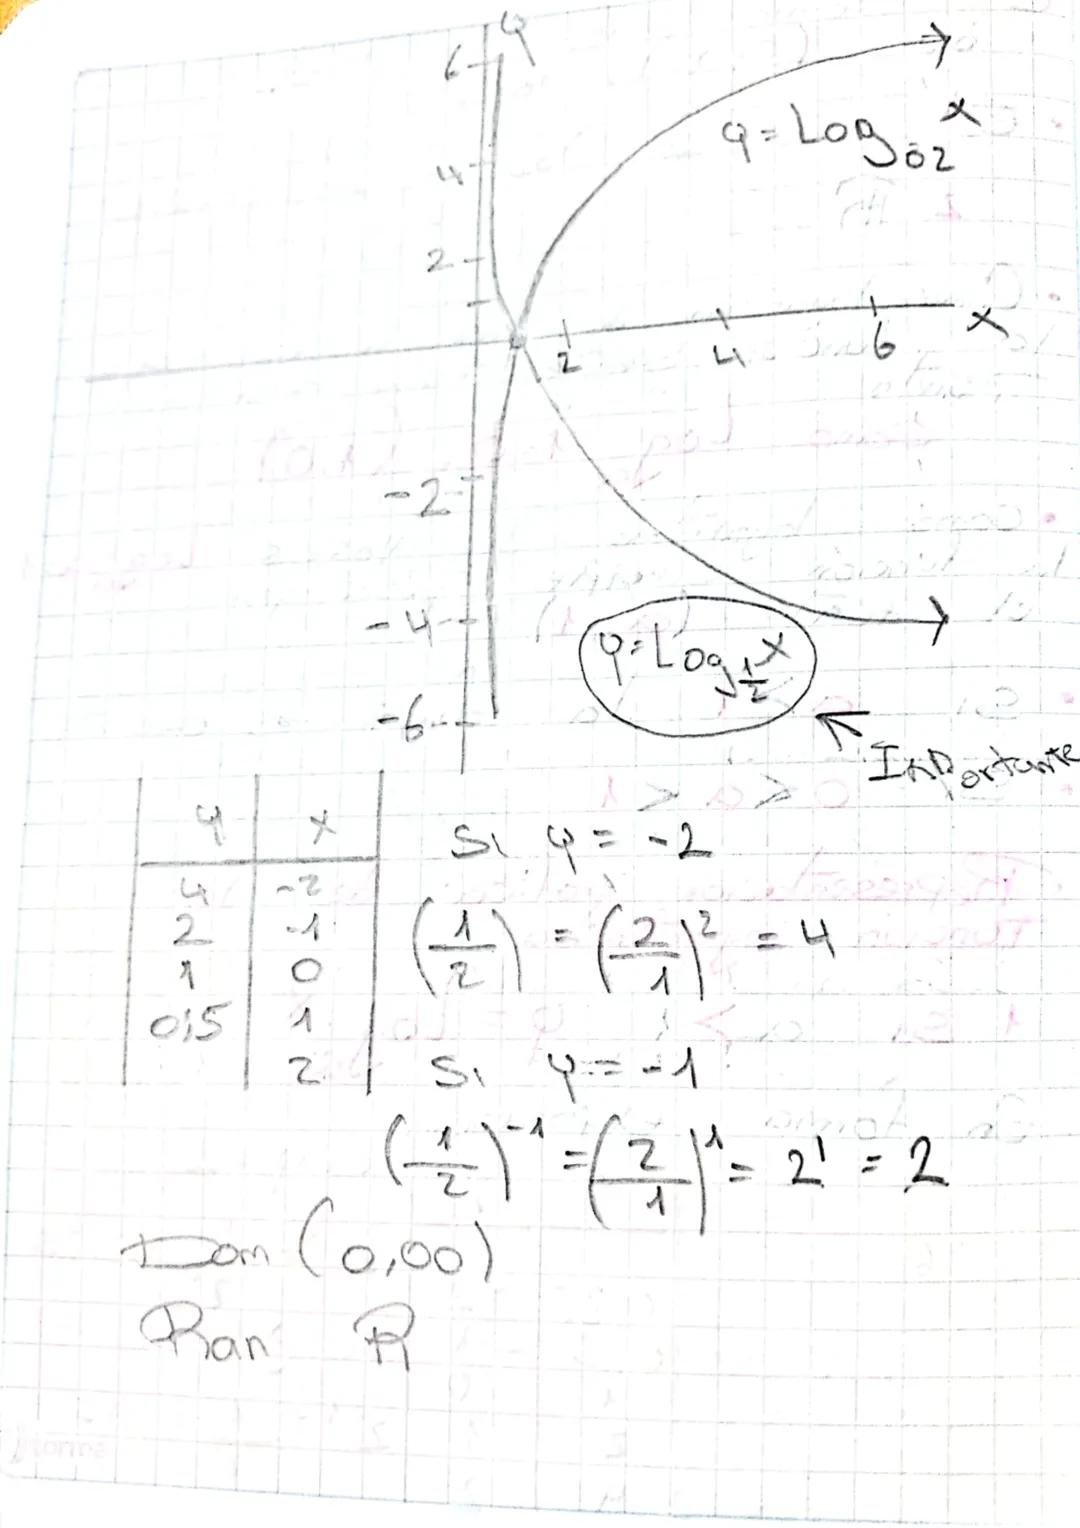 y
6
y = Log₀₂ x
4
2
x
2 4 6
-2
-4
y = Log 1/2 x
-6
Importante
y | x
4 | -2
2 | -1
1 | 0
0,5 | 1
2
Si y = -2
(1/2) = (2/1)² = 4
Si y = -1
(1/2)⁻¹ = (2/1)¹ = 2¹ = 2
Dom (0,00)
Ran R